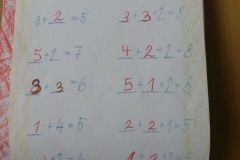 3+2=5
3+3+2=8
5+2=7
4+2+2=8
3+3=6
5+1+2=8
1+4=5
2+2+1=5